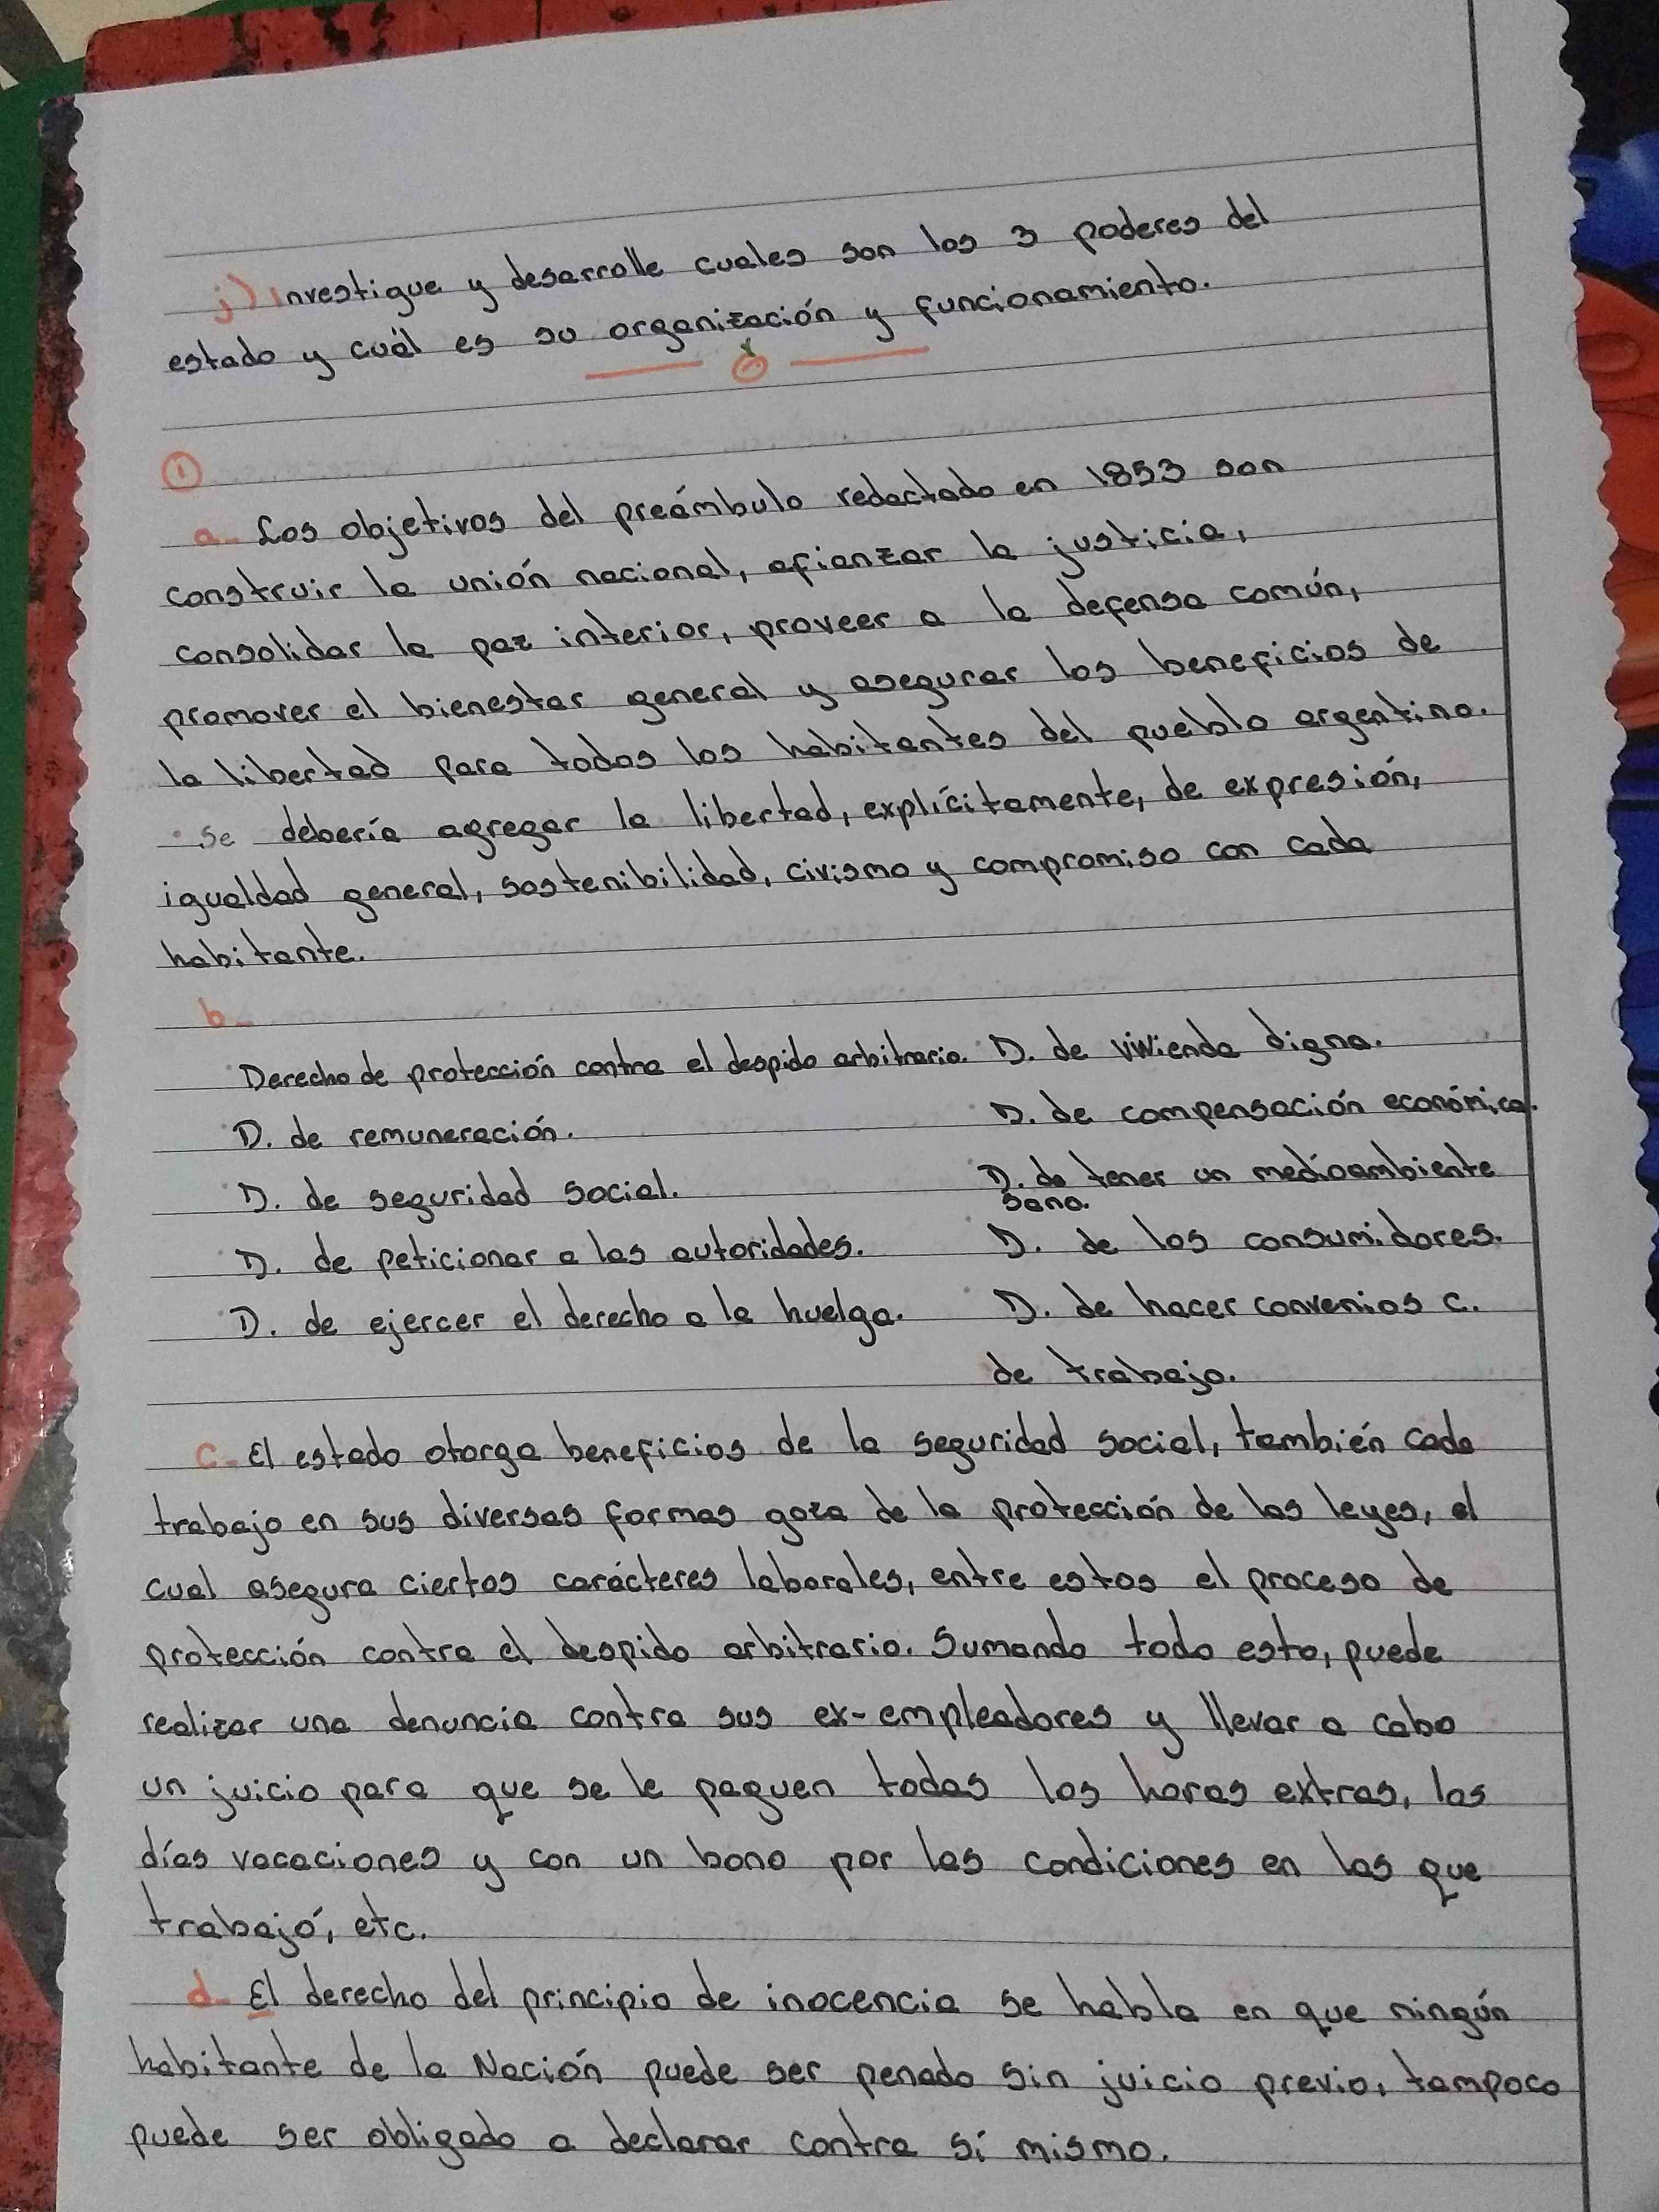 j) Investigue y desarrolle cuales son los 3 poderes del
estado y cuál es su organización y funcionamiento.
①
a- Los objetivos del preámbulo redactado en 1853 son
construir la unión nacional, afianzar la justicia,
consolidar la paz interior, proveer a la defensa común,
promover el bienestar general y asegurar los beneficios de
la libertad para todos los habitantes del pueblo argentino.
Se debería agregar la libertad, explícitamente, de expresión,
igualdad general, sostenibilidad, civismo y compromiso con cada
habitante.
b-
Derecho de protección contra el despido arbitrario. D. de vivienda digna.
D. de remuneración. D. de compensación económica.
D. de seguridad social. D. de tener un medioambiente
sano.
D. de peticionar a las autoridades. D. de los consumidores.
D. de ejercer el derecho a la huelga. D. de hacer convenios c.
de trabajo.
c- El estado otorga beneficios de la seguridad social, también cada
trabajo en sus diversas formas goza de la protección de las leyes, el
cual asegura ciertos carácteres laborales, entre estos el proceso de
protección contra el despido arbitrario. Sumando todo esto, puede
realizar una denuncia contra sus ex-empleadores y llevar a cabo
un juicio para que se le paguen todas las horas extras, los
días vacaciones y con un bono por las condiciones en las que
trabajó, etc.
d- El derecho del principio de inocencia se habla en que ningún
habitante de la Nación puede ser penado sin juicio previo, tampoco
puede ser obligado a declarar contra sí mismo.